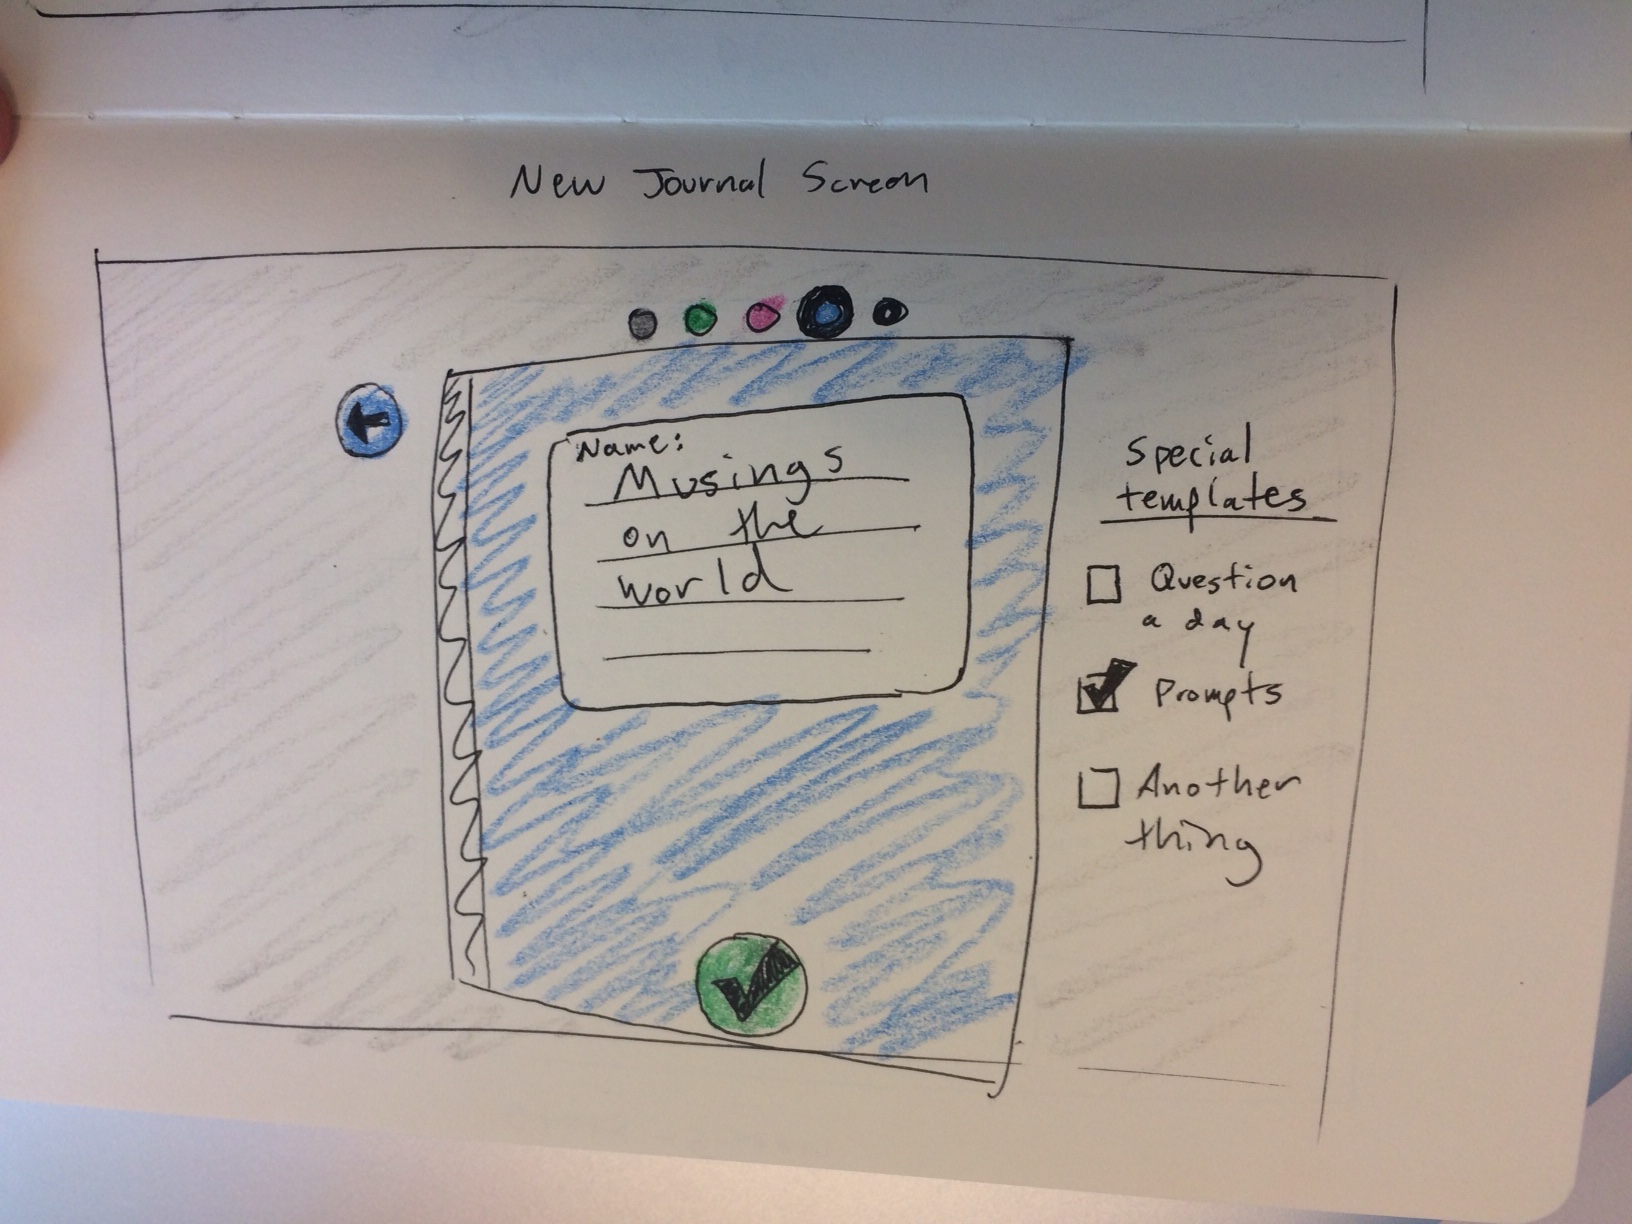 New Journal Screen
Name:
Musings
on the
world
Special
templates
Question
a day
Prompts
Another
thing